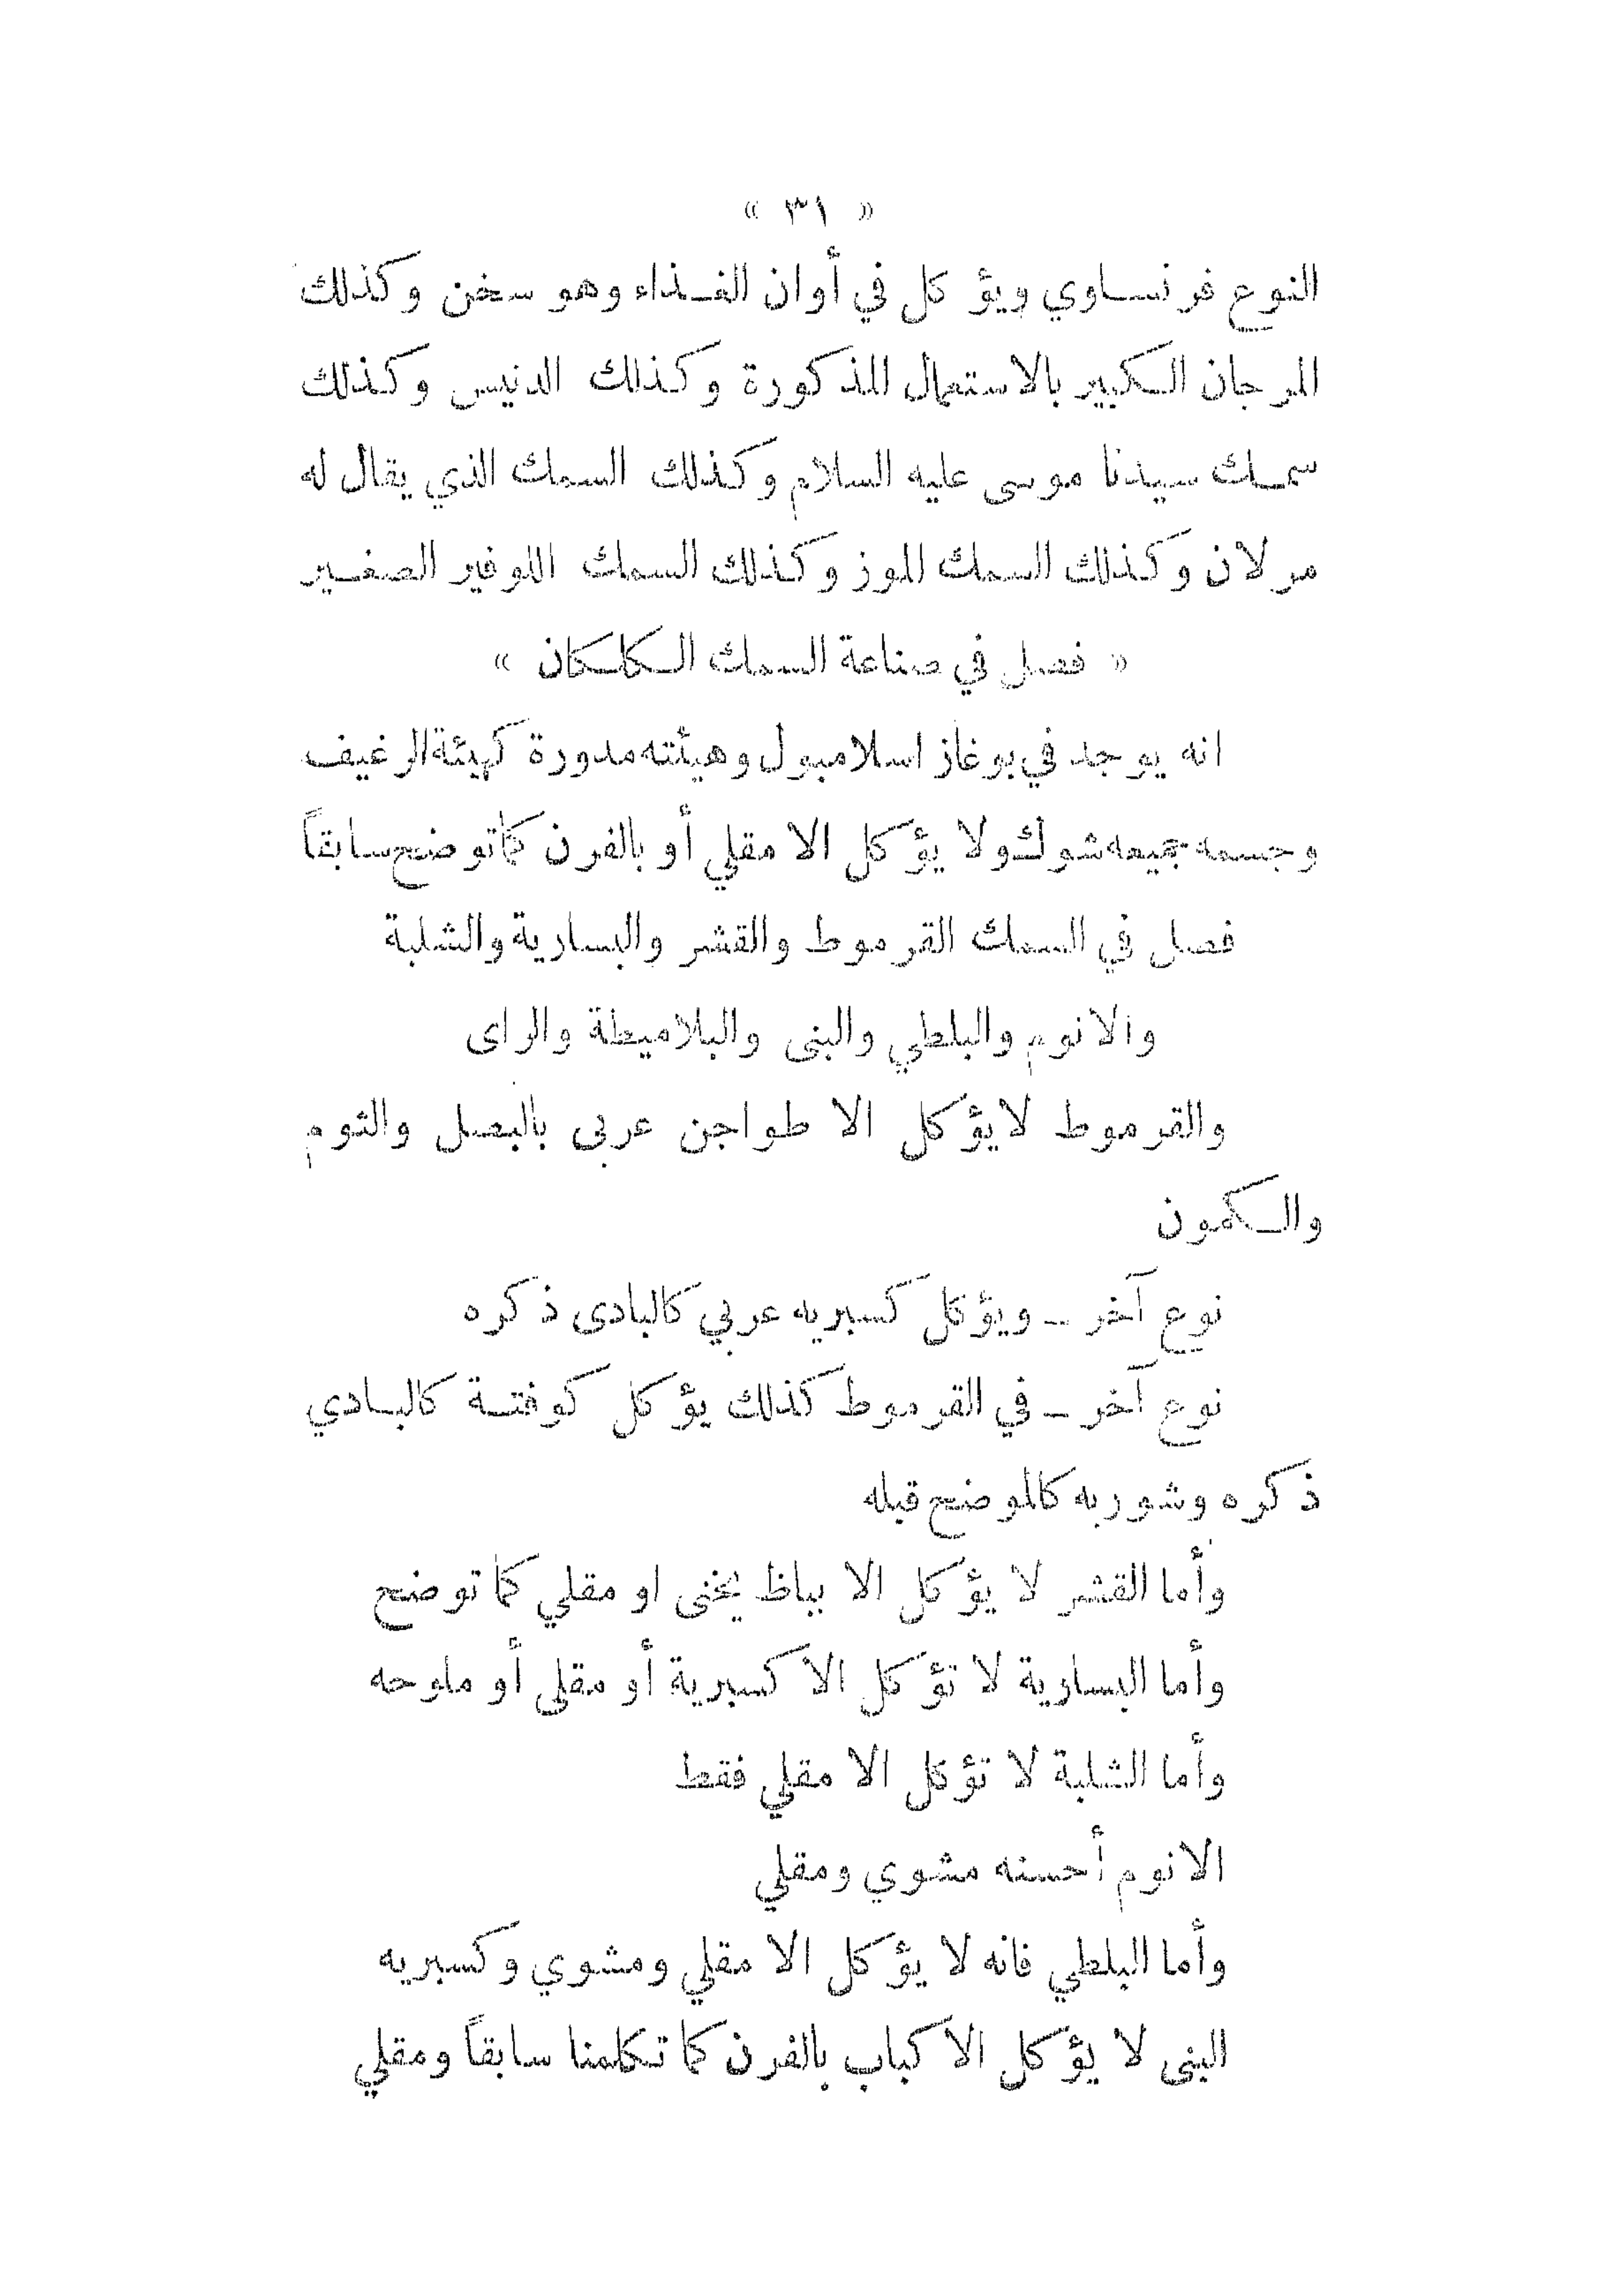 « ٣١ »
النوع فرنساوي ويؤكل في أوان الغذاء وهو سخن وكذلك
المرجان الكبير بالاستعمال المذكورة وكذلك الدنيس وكذلك
سمك سيدنا موسى عليه السلام وكذلك السمك الذي يقال له
مرلان وكذلك السمك الموز وكذلك السمك اللوفير الصغير
« فصل في صناعة السمك الكلكان »
انه يوجد في بوغاز اسلامبول وهيئته مدورة كهيئة الرغيف
وجسمه جميعه شوك ولا يؤكل الا مقلي أو بالفرن كما توضح سابقاً
فصل في السمك القرموط والقشر والبسارية والشلبة
والانوم والبلطي والبنى والبلاميطة والراى
والقرموط لا يؤكل الا طواجن عربى بالبصل والثوم
والكمون
نوع آخر – ويؤكل كسبريه عربي كالبادى ذكره
نوع آخر – في القرموط كذلك يؤكل كوفتة كالبادي
ذكره وشوربه كالموضح قبله
وأما القشر لا يؤكل الا بباظ يخنى او مقلي كما توضح
وأما البسارية لا تؤكل الا كسبرية أو مقلى أو ملوحه
وأما الشلبة لا تؤكل الا مقلي فقط
الانوم أحسنه مشوي ومقلي
وأما البلطي فانه لا يؤكل الا مقلي ومشوي وكسبريه
البنى لا يؤكل الا كباب بالفرن كما تكلمنا سابقاً ومقلي